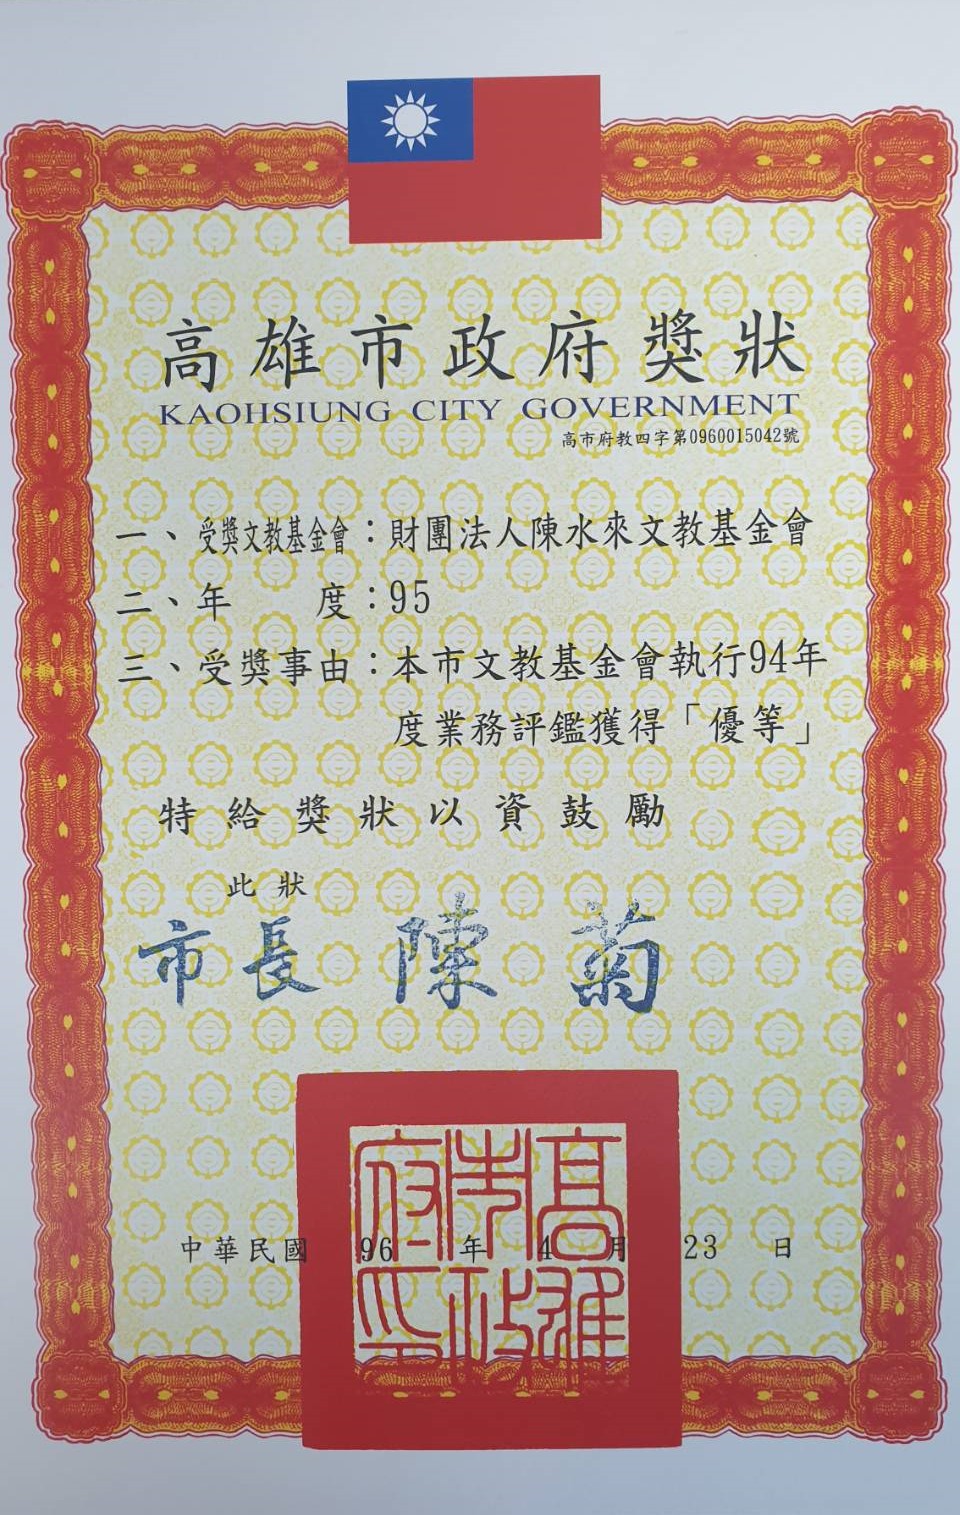 高雄市政府獎狀
KAOHSIUNG CITY GOVERNMENT
高市府教四字第0960015042號
一、受獎文教基金會：財團法人陳水來文教基金會
二、年　　度：95
三、受獎事由：本市文教基金會執行94年
度業務評鑑獲得「優等」
特給獎狀以資鼓勵
此狀
市長 陳菊
高雄市政府印
中華民國 96 年 4 月 23 日